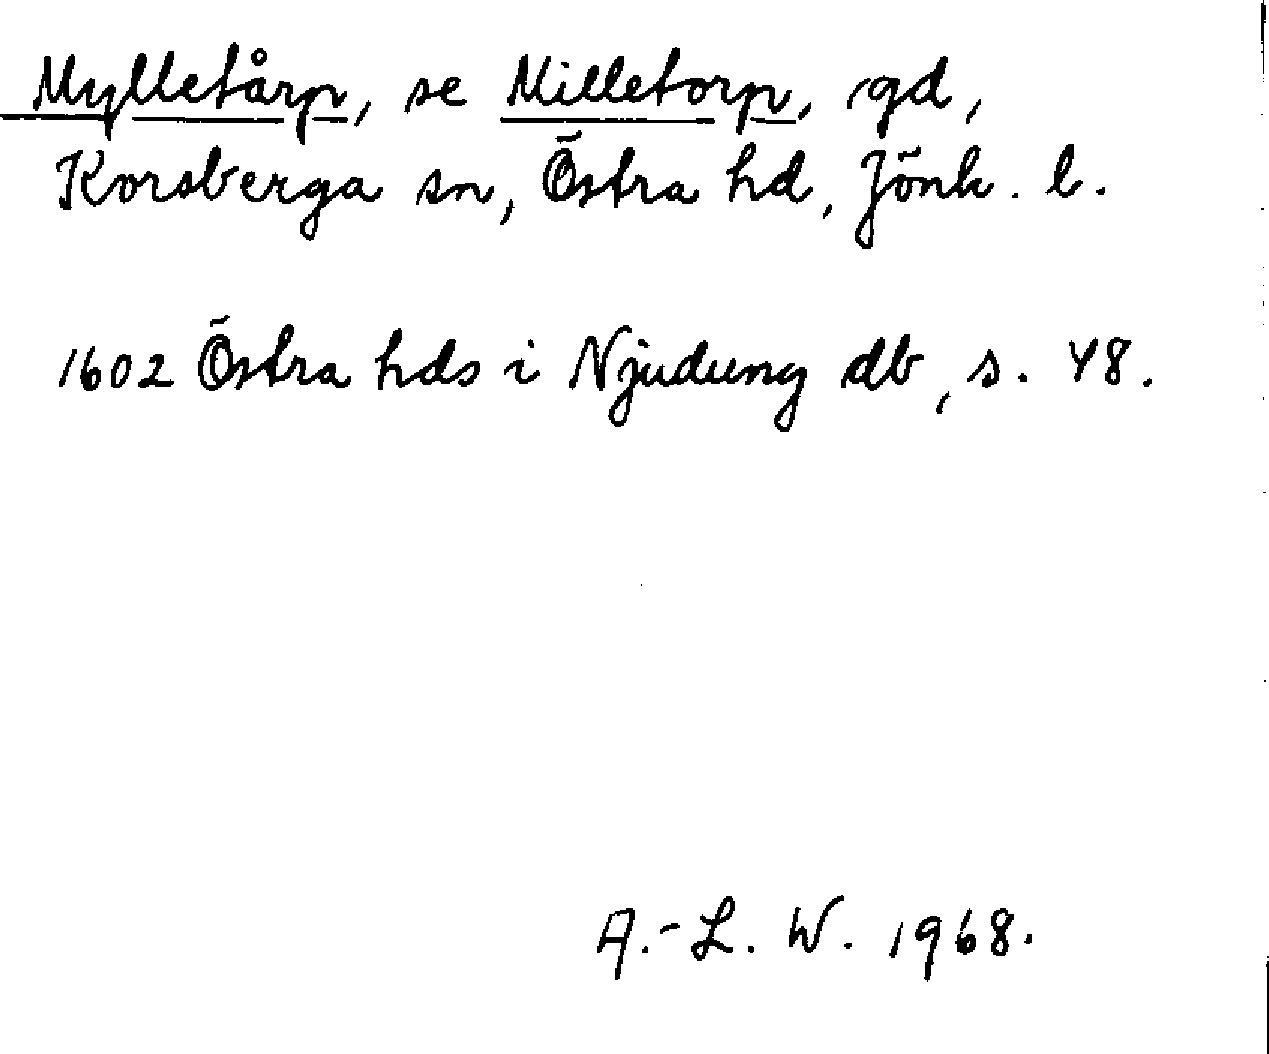 Mylletårp, se Milletorp, gd,
Korsberga sn, Östra hd, Jönk. l.
1602 Östra hds i Njudung db, s. 48.
A.-L. W. 1968.